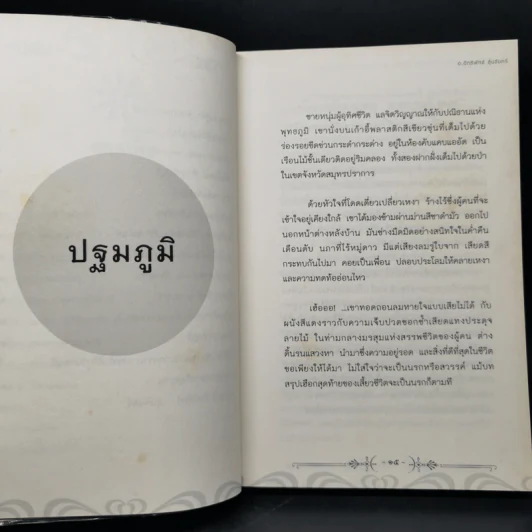 ปฐมภูมิ
ชายหนุ่มผู้อุทิศชีวิต แลจิตวิญญาณให้กับปณิธานแห่ง
พุทธภูมิ เขานั่งบนเก้าอี้พลาสติกสีเขียวขุ่นที่เต็มไปด้วย
ร่องรอยขีดข่วนกระดำกระด่าง อยู่ในห้องคับแคบแออัด เป็น
เรือนไม้ชั้นเดียวติดอยู่ริมคลอง ทั้งสองฝากฝั่งเต็มไปด้วยป่า
ในเขตจังหวัดสมุทรปราการ
ด้วยหัวใจที่โดดเดี่ยวเปลี่ยวเหงา ร้างไร้ซึ่งผู้คนที่จะ
เข้าใจอยู่เคียงใกล้ เขาได้มองข้ามผ่านม่านสีชาดำมัว ออกไป
นอกหน้าต่างหลังบ้าน มันช่างมืดมิดอย่างสนิทใจในค่ำคืน
เดือนดับ นภาที่ไร้หมู่ดาว มีแต่เสียงลมรู่ใบจาก เสียดสี
กระทบกันไปมา คอยเป็นเพื่อน ปลอบประโลมให้คลายเหงา
และความทดท้ออ่อนไหว
เฮ้ออย! ...เขาทอดถอนลมหายใจแบบเสียไม่ได้ กับ
ผนังสีแดงราวกับความเจ็บปวดชอกช้ำเสียดแทงประดุจ
ลายไม้ ในท่ามกลางมรสุมแห่งสรรพชีวิตของผู้คน ต่าง
ดิ้นรนแสวงหา นำมาซึ่งความอยู่รอด และสิ่งที่ดีที่สุดในชีวิต
ขอเพียงให้ได้มา ไม่ใส่ใจว่าจะเป็นนรกหรือสวรรค์ แม้บท
สรุปเฮือกสุดท้ายของเสี้ยวชีวิตจะเป็นนรกก็ตามที
๑๕